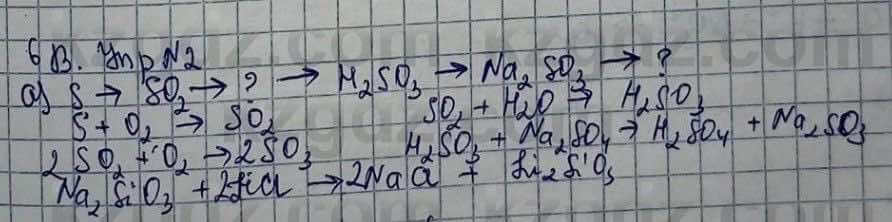 6B. Упр N2
a) S → SO₂ → ? → H₂SO₃ → Na₂SO₃ → ?
S + O₂ → SO₂ SO₂ + H₂O → H₂SO₃
2SO₂ + O₂ → 2SO₃ H₂SO₃ + Na₂SO₄ → H₂SO₄ + Na₂SO₃
Na₂SiO₃ + 2LiCl → 2NaCl + Li₂SiO₃